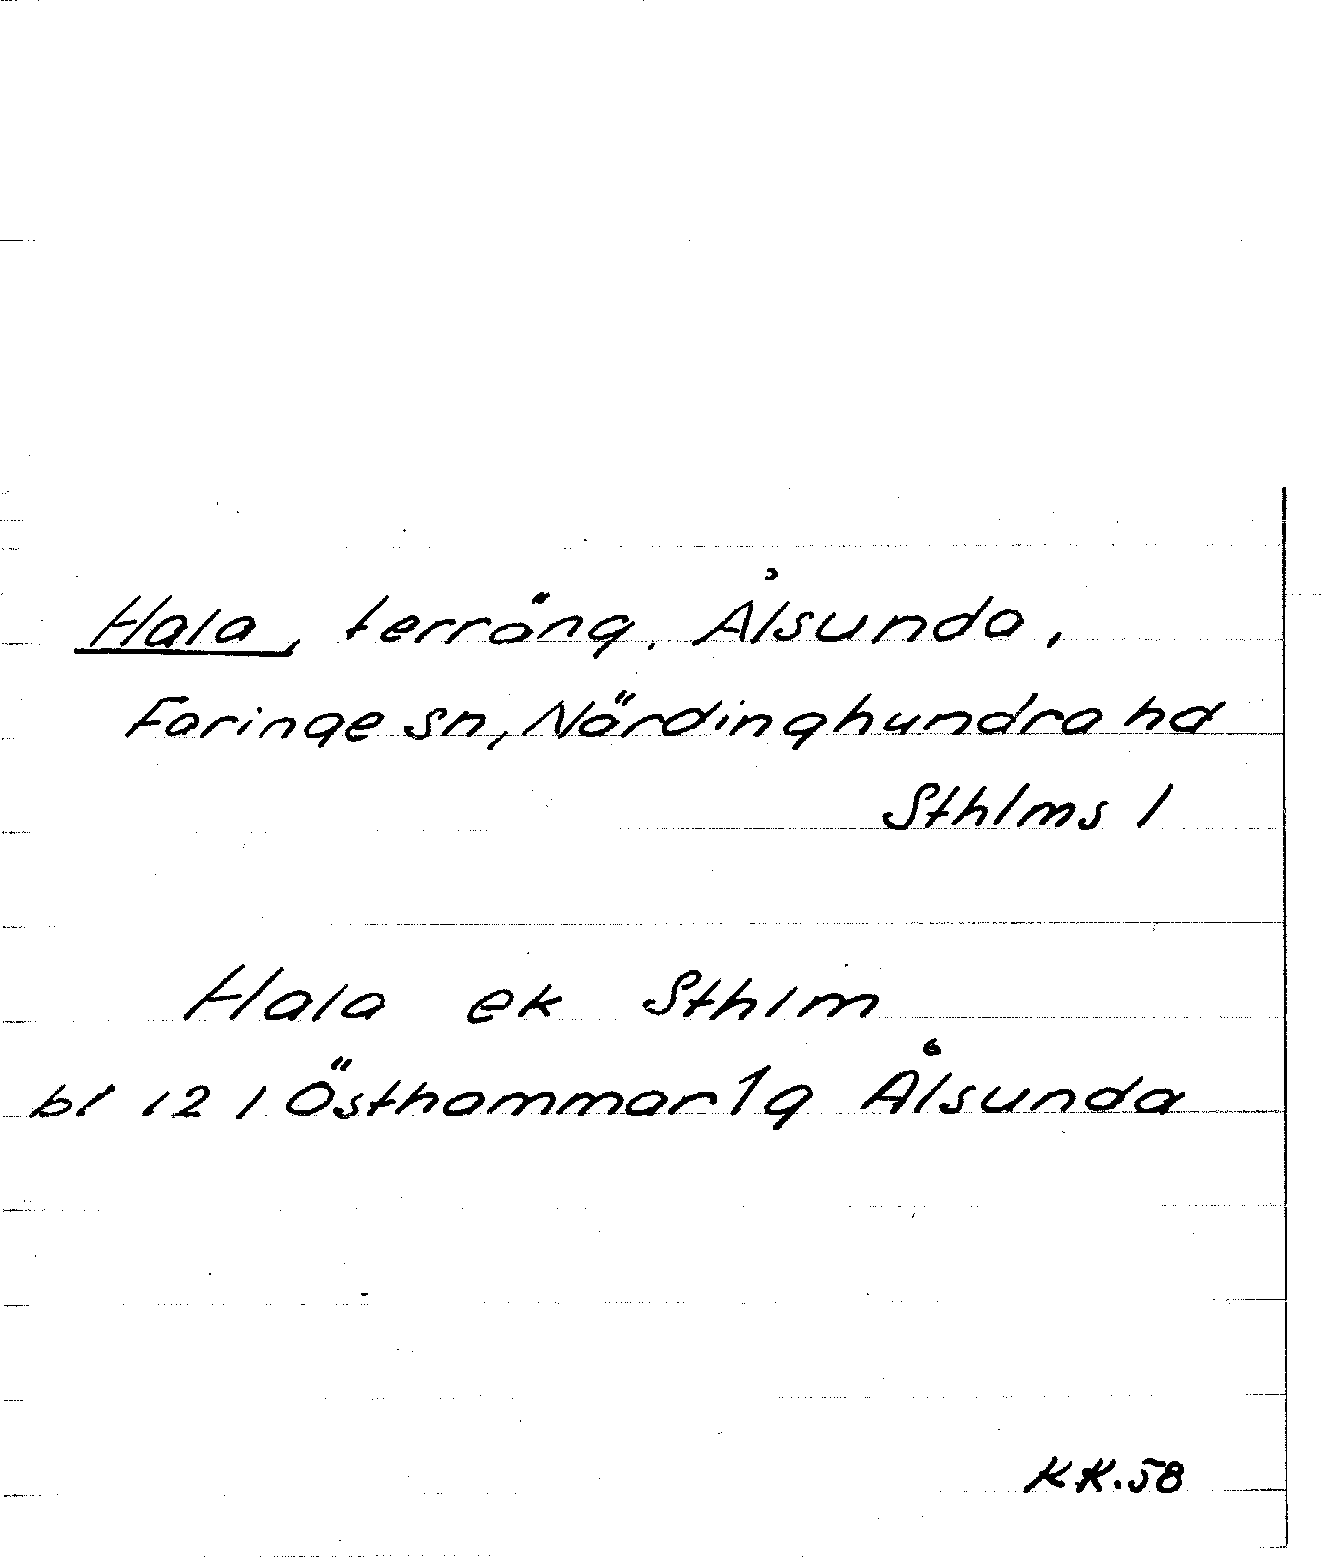 Hala, terräng, Ålsunda,
Faringe sn, Närdinghundra hd
Sthlms l
Hala ek Sthlm
bl 121 Östhammar 1g Ålsunda
KK.58